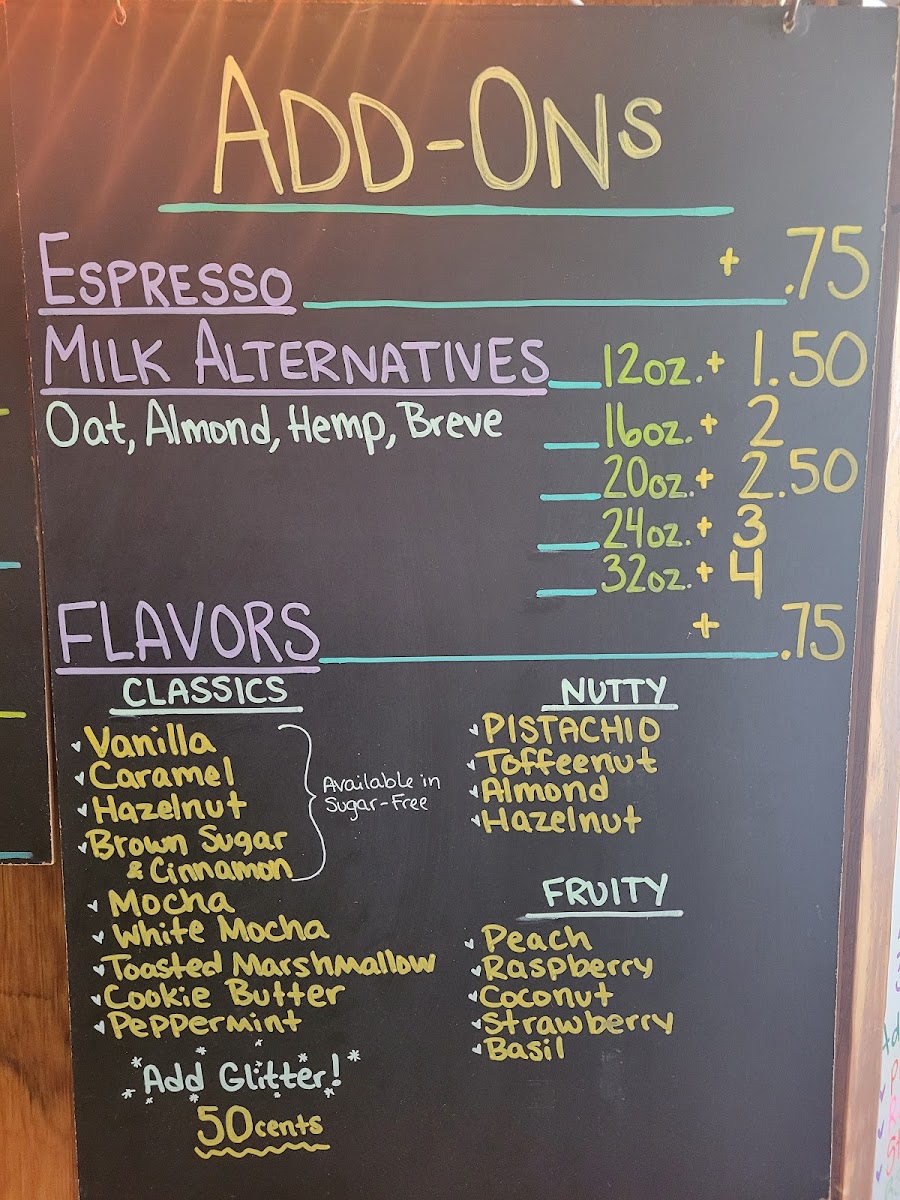 ADD-ONS
ESPRESSO + .75
MILK ALTERNATIVES 12oz. + 1.50
Oat, Almond, Hemp, Breve 16oz. + 2
20oz. + 2.50
24oz. + 3
32oz. + 4
FLAVORS + .75
CLASSICS
Vanilla
Caramel
Hazelnut
Brown Sugar
& Cinnamon
Available in
Sugar-Free
Mocha
White Mocha
Toasted Marshmallow
Cookie Butter
Peppermint
Add Glitter!
50 cents
NUTTY
PISTACHIO
Toffeenut
Almond
Hazelnut
FRUITY
Peach
Raspberry
Coconut
Strawberry
Basil